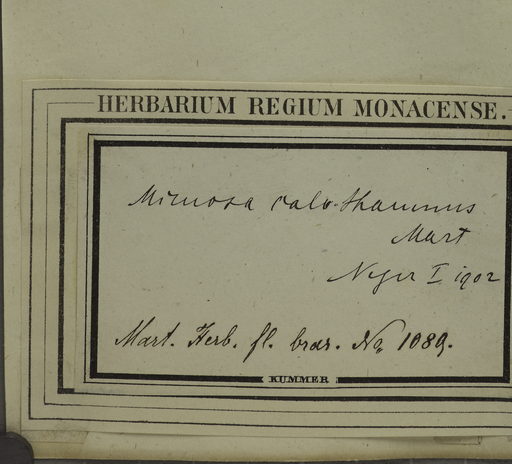 HERBARIUM REGIUM MONACENSE.
Mimosa calothamnus
Mart
I 1902
Mart. Herb. fl. bras. No 1089.
KUMMER